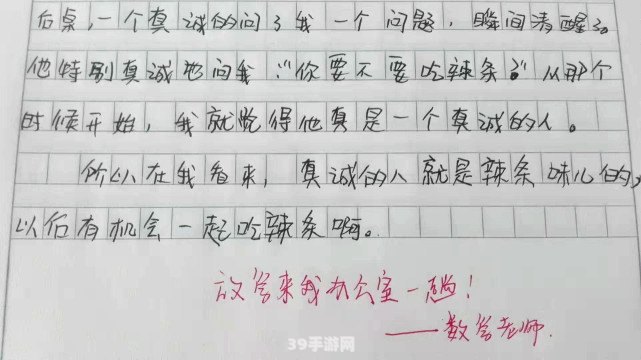 后桌，一个真诚的问了我一个问题，瞬间清醒了。
他特别真诚地问我：“你要不要吃辣条？”从那个
时候开始，我就觉得他真是一个真诚的人。
所以在我看来，真诚的人就是辣条味儿的，
以后有机会一起吃辣条啊。
放学来我办公室一趟！
——数学老师.
39手游网